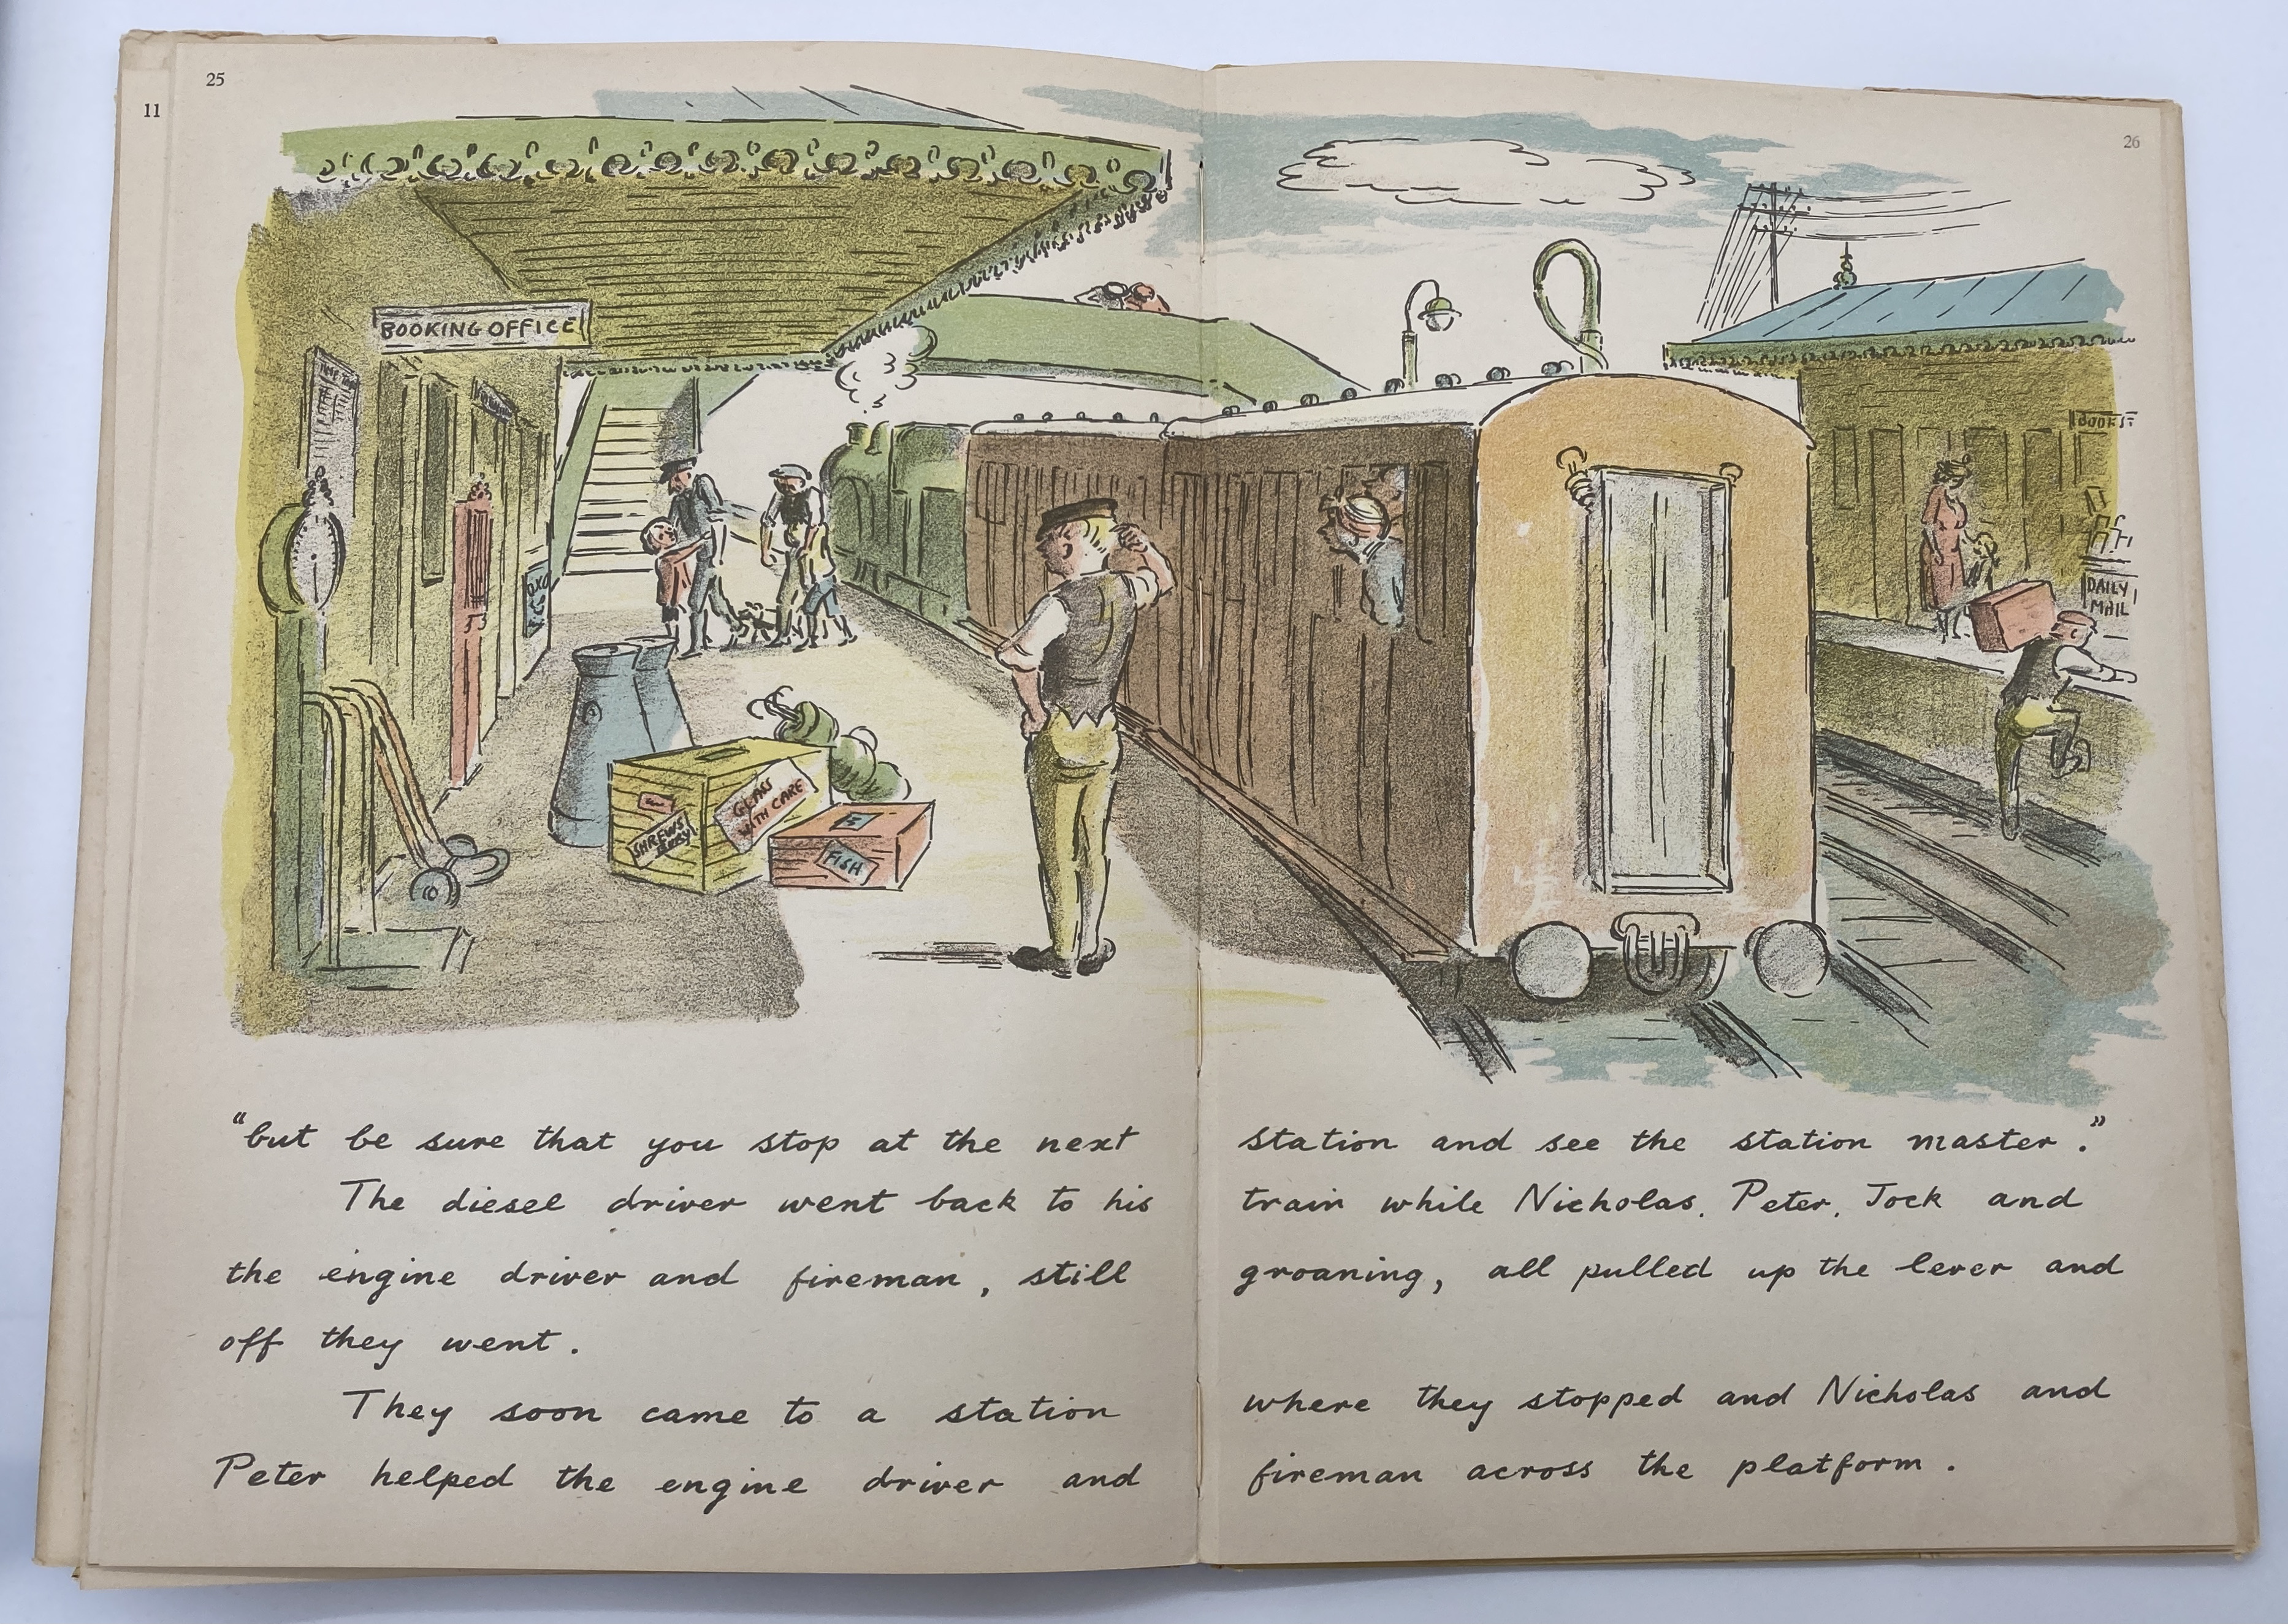 25
11
26
BOOKING OFFICE
OXO
SHREWS
BURY
GLASS
WITH CARE
FISH
BOOKST
DAILY
MAIL
"but be sure that you stop at the next station and see the station master."
The diesel driver went back to his train while Nicholas, Peter, Jock and
the engine driver and fireman, still groaning, all pulled up the lever and
off they went.
They soon came to a station where they stopped and Nicholas and
Peter helped the engine driver and fireman across the platform.